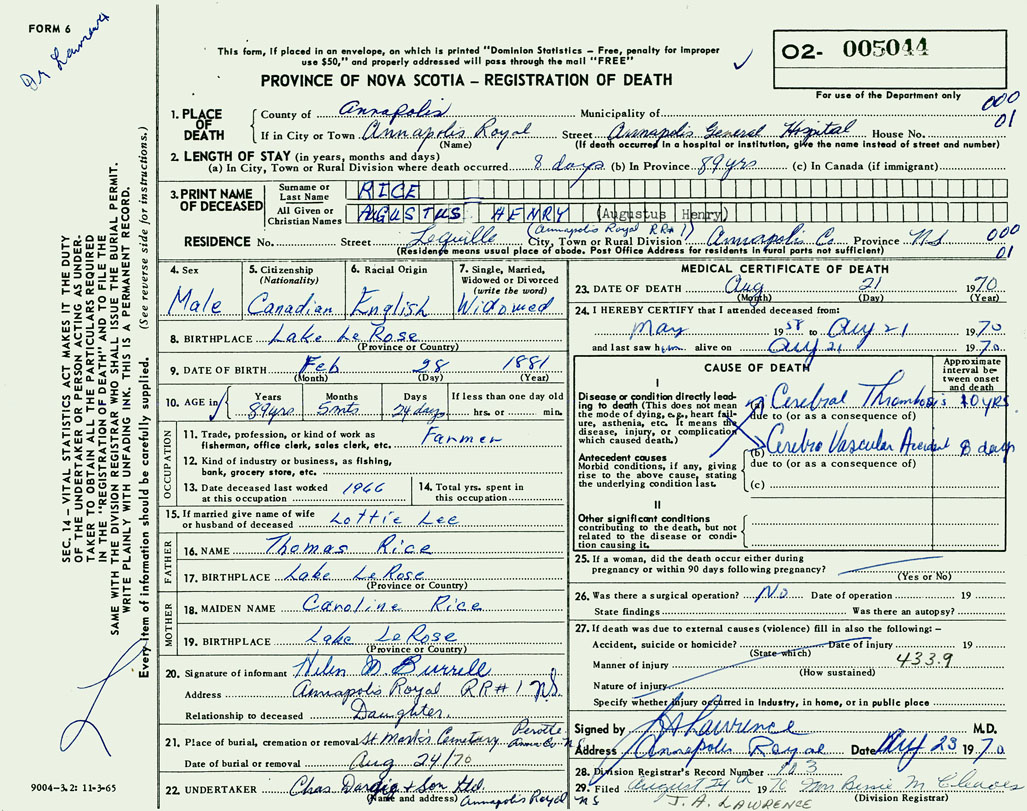 FORM 6
Dr Lawrence
This form, if placed in an envelope, on which is printed "Dominion Statistics – Free, penalty for improper
use $50," and properly addressed will pass through the mail "FREE"
PROVINCE OF NOVA SCOTIA – REGISTRATION OF DEATH
O2- 005044
For use of the Department only
000
01
1. PLACE OF DEATH
County of Annapolis Municipality of
If in City or Town Annapolis Royal Street Annapolis General Hospital House No.
(Name) (If death occurred in a hospital or institution, give the name instead of street and number)
2. LENGTH OF STAY (in years, months and days)
(a) In City, Town or Rural Division where death occurred 8 days (b) In Province 89 yrs (c) In Canada (if immigrant)
3. PRINT NAME OF DECEASED
Surname or Last Name RICE
All Given or Christian Names AUGUSTUS HENRY (Augustus Henry)
(Annapolis Royal RR#1)
RESIDENCE No. Street Lequille City, Town or Rural Division Annapolis Co. Province NS
(Residence means usual place of abode. Post Office Address for residents in rural parts not sufficient)
000
01
4. Sex Male
5. Citizenship (Nationality) Canadian
6. Racial Origin English
7. Single, Married, Widowed or Divorced (write the word) Widowed
8. BIRTHPLACE Lake Le Rose
(Province or Country)
9. DATE OF BIRTH Feb 28 1881
(Month) (Day) (Year)
10. AGE in Years Months Days If less than one day old
89 yrs 5 mts 24 days hrs. or min.
OCCUPATION
11. Trade, profession, or kind of work as
fisherman, office clerk, sales clerk, etc. Farmer
12. Kind of industry or business, as fishing,
bank, grocery store, etc.
13. Date deceased last worked
at this occupation 1966
14. Total yrs. spent in
this occupation
15. If married give name of wife
or husband of deceased Lottie Lee
FATHER
16. NAME Thomas Rice
17. BIRTHPLACE Lake Le Rose
(Province or Country)
MOTHER
18. MAIDEN NAME Caroline Rice
19. BIRTHPLACE Lake LeRose
(Province or Country)
20. Signature of informant Helen M. Burrell
Address Annapolis Royal RR#1 N.S.
Relationship to deceased Daughter.
21. Place of burial, cremation or removal St Marks Cemetary Perotte Anna Co N.S.
Date of burial or removal Aug 24/70
22. UNDERTAKER Chas Dargie + Son Ltd.
(Name and address) Annapolis Royal NS
MEDICAL CERTIFICATE OF DEATH
23. DATE OF DEATH Aug 21 1970
(Month) (Day) (Year)
24. I HEREBY CERTIFY that I attended deceased from:
May 1958 to Aug 21 1970
and last saw him alive on Aug 21 1970.
CAUSE OF DEATH
Approximate interval between onset and death
I
Disease or condition directly leading to death (This does not mean
the mode of dying, e.g., heart failure, asthenia, etc. It means the
disease, injury, or complication
which caused death.)
(a) Cerebral Thrombosis 10 yrs
due to (or as a consequence of)
(b) Cerebro Vascular Accident 8 days
due to (or as a consequence of)
(c)
Antecedent causes
Morbid conditions, if any, giving
rise to the above cause, stating
the underlying condition last.
II
Other significant conditions
contributing to the death, but not
related to the disease or condition causing it.
25. If a woman, did the death occur either during
pregnancy or within 90 days following pregnancy?
(Yes or No)
26. Was there a surgical operation? No Date of operation 19
State findings Was there an autopsy?
27. If death was due to external causes (violence) fill in also the following: –
Accident, suicide or homicide? Date of injury 19
(State which)
Manner of injury 433.9
(How sustained)
Nature of injury
Specify whether injury occurred in Industry, in home, or in public place
Signed by Lawrence M.D.
Address Annapolis Royal Date Aug 23 1970
28. Division Registrar's Record Number 3
29. Filed August 24th 1970 Mrs M Cleaves
J. A. LAWRENCE (Division Registrar)
SEC. 14 – VITAL STATISTICS ACT MAKES IT THE DUTY
OF THE UNDERTAKER OR PERSON ACTING AS UNDER-
TAKER TO OBTAIN ALL THE PARTICULARS REQUIRED
IN THE "REGISTRATION OF DEATH" AND TO FILE THE
SAME WITH THE DIVISION REGISTRAR WHO SHALL ISSUE THE BURIAL PERMIT.
WRITE PLAINLY WITH UNFADING INK. THIS IS A PERMANENT RECORD.
Every item of information should be carefully supplied. (See reverse side for instructions.)
9004-3.2: 11-3-65